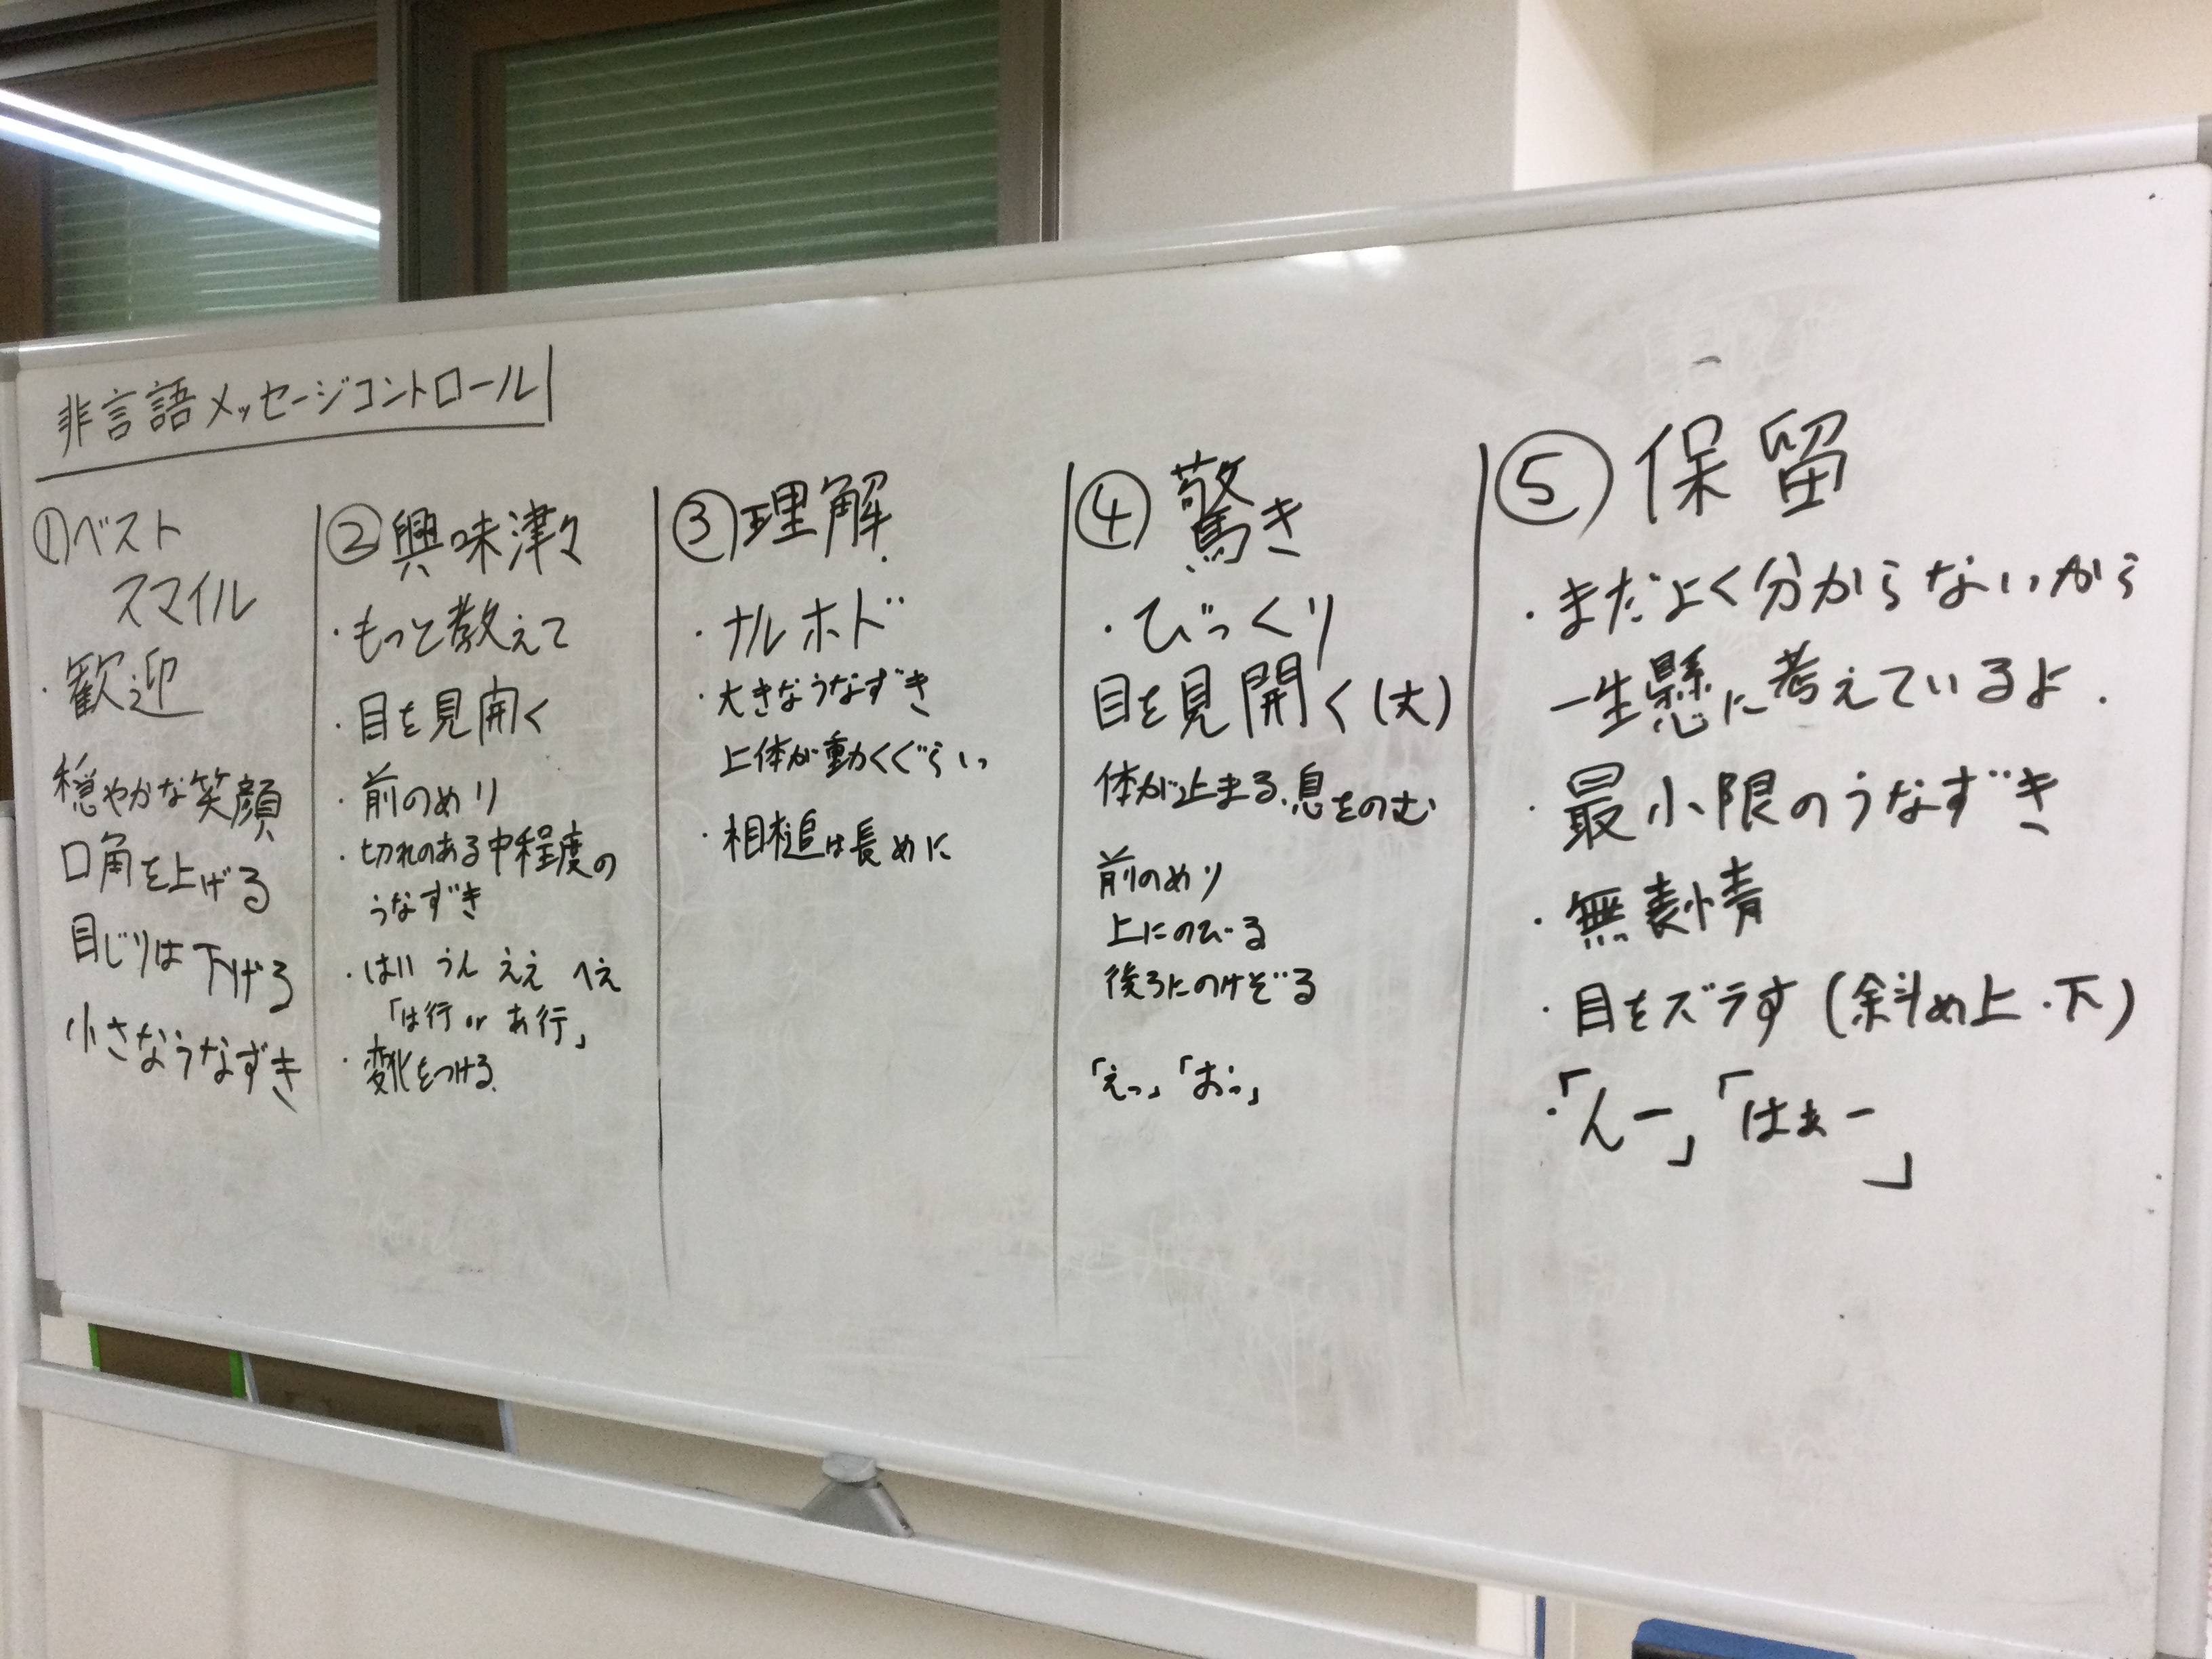 非言語メッセージコントロール
①ベスト
スマイル
・歓迎
穏やかな笑顔
口角を上げる
目じりは下げる
小さなうなずき
②興味津々
・もっと教えて
・目を見開く
・前のめり
・切れのある中程度の
うなずき
・はい うん ええ へえ
「は行 or あ行」
・変化をつける
③理解
・ナルホド
・大きなうなずき
上体が動くぐらい
・相槌は長めに
④驚き
・びっくり
目を見開く(大)
体が止まる、息をのむ
前のめり
上にのびる
後ろにのけぞる
「えっ」「おっ」
⑤保留
・まだよく分からないから
一生懸に考えているよ.
・最小限のうなずき
・無表情
・目をズラす(斜め上・下)
・「んー」「はぁー」